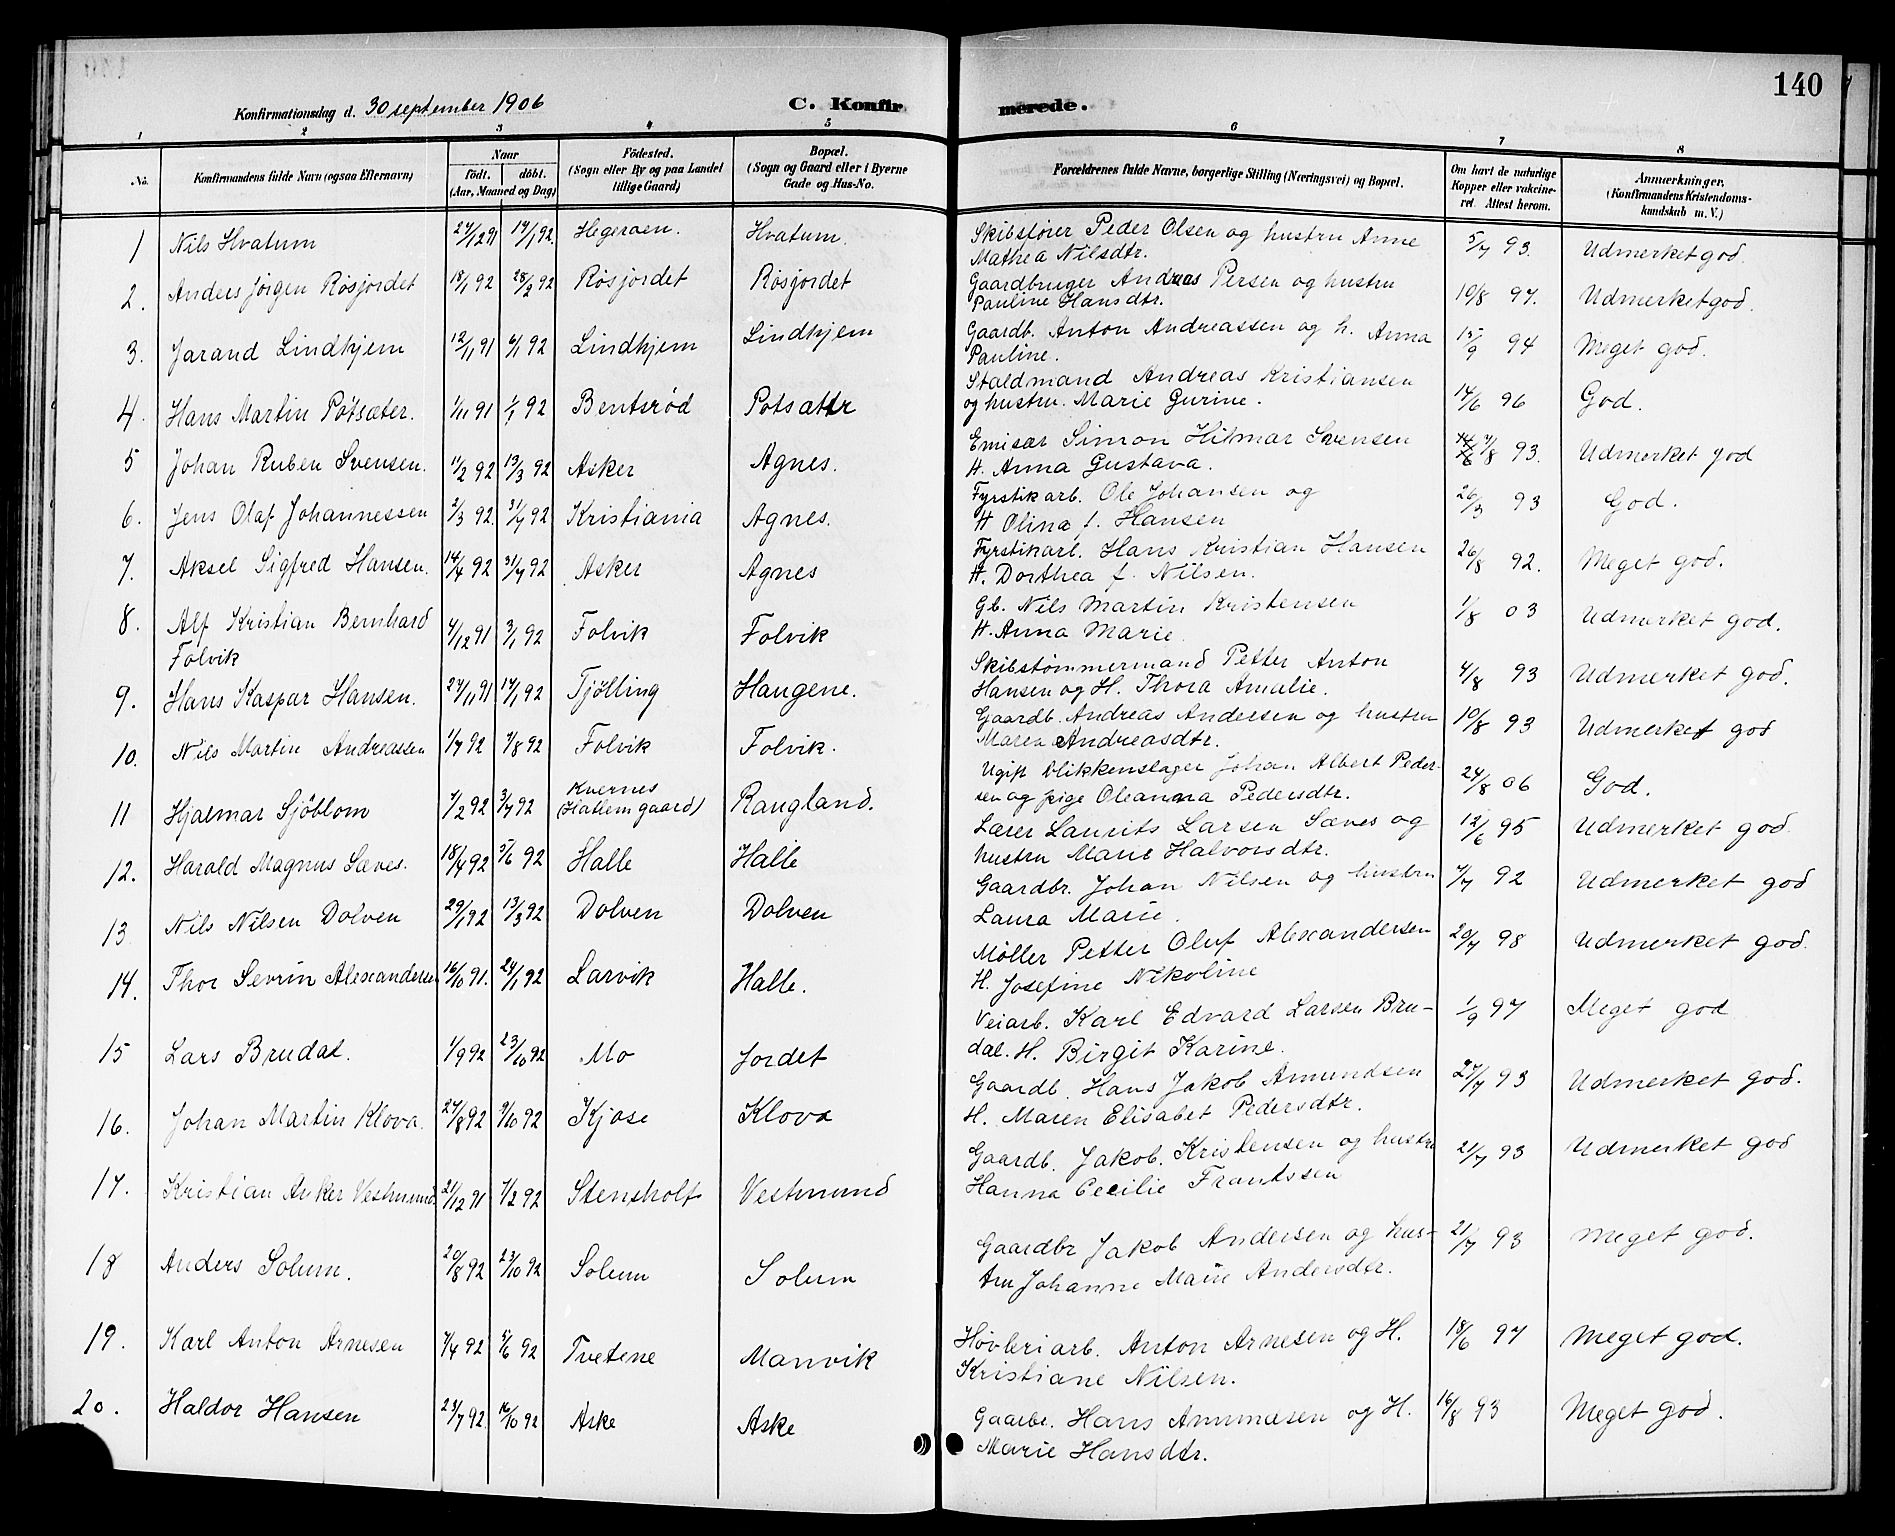 140
Konfirmationsdag d. 30 september 1906 C. Konfirmerede.
1 2 3 4 5 6 7 8
No. Konfirmandens fulde Navn (ogsaa Efternavn) Naar födt. döbt. (Aar, Maaned og Dag) Födested. (Sogn eller By og paa Landet tillige Gaard) Bopæl. (Sogn og Gaard eller i Byerne Gade og Hus-No. Forældrenes fulde Navne, borgerlige Stilling (Næringsvei) og Bopæl. Om havt de naturlige Kopper eller vakcineret. Attest herom. Anmærkninger. (Konfirmandens Kristendomskundskab m. V.)
1 Nils Hvatum 27/12 91 17/1 92 Hegeroen. Hvatum. Skibsfører Peder Olsen og hustru Anne
Mathea Nilsdtr. 5/7 93. Udmerket god.
2. Anders Jörgen Røsjordet 18/1 92 28/2 92 Røsjordet Røsjordet Gaardbruger Andreas Persen og hustru
Pauline Hansdtr. 10/8 97. Udmerket god.
3. Jarand Lindhjem 12/11 91 6/1 92 Lindhjem Lindhjem Gaardb. Anton Andreassen og h. Anna
Pauline. 15/9 94 Meget god.
4. Hans Martin Pötsæter. 1/11 91 1/1 92 Bentsrød Potsætr Staldmand Andreas Kristiansen
og hustru. Marie Gurine. 14/6 96 God.
5 Johan Ruben Svensen. 11/2 92 13/3 92 Asker Agnes. Emisær Simon Hilmar Svensen
H. Anna Gustava. 93. Udmerket god
6. Jens Olaf Johannessen 2/3 92. 31/7 92 Kristiania Agnes. Fyrstikarb. Ole Johansen og
H Olina f. Hansen 26/3 93 God.
7. Aksel Sigfred Hansen. 14/4 92 31/7 92 Asker Agnes Fyrstikarb. Hans Kristian Hansen
H. Dorthea f. Nilsen. 26/8 92. Meget god.
8. Alf Kristian Bernhard
Folvik 4/12 91 3/1 92 Folvik Folvik Gb. Nils Martin Kristensen
H. Anna Marie 1/8 03 Udmerket god.
9. Hans Kaspar Hansen. 27/11 91 17/1 92 Tjølling Haugene. Skibstømmermand Petter Anton
Hansen og H. Thora Amalie. 4/8 93 Udmerket god.
10. Nils Martin Andreassen 1/7 92 7/8 92 Folvik Folvik. Gaardb. Andreas Andersen og hustru
Maren Andreasdtr. 10/8 93 Udmerket god
11 Hjalmar Sjöblom 7/2 92 3/7 92 Kvernes
(Hatlem gaard) Raugland. Ugift blikkenslager Johan Albert Peder-
sen og pige Oleanna Pedersdtr. 24/8 06 God.
12. Harald Magnus Sæves. 18/4 92 5/6 92 Halle Halle Lærer Laurits Larsen Sæves og
hustru Marie Halvorsdtr. 12/6 95 Udmerket god.
13 Nils Nilsen Dolven 29/1 92 13/3 92 Dolven Dolven Gaardbr. Johan Nilsen og hustru
Laura Marie. 7/7 92 Udmerket god
14. Thor Sevrin Alexandersen 16/10 91. 24/1 92 Larvik Halle. Møller Petter Oluf Alexandersen
H. Josefine Nikoline 20/7 98 Udmerket god.
15 Lars Brudal. 1/9 92 23/10 92 Mo Jordet Veiarb. Karl Edvard Larsen Bru-
dal. H. Birgit Karine. 1/9 97 Meget god
16. Johan Martin Klova. 27/8 92 9/10 92 Kjose Klova Gaardb. Hans Jakob Amundsen
H. Maren Elisabet Pedersdtr. 27/7 93 Udmerket god.
17. Kristian Anker Vestmund. 21/12 91 7/2 92 Stensholt Vestmund Gaardb. Jakob. Kristensen og hustru
Hanna Cecilie Frantssen 21/7 93 Udmerket god
18 Anders Solum. 20/8 92 23/10 92 Solum Solum Gaardbr Jakob Andersen og hus-
tru Johanne Marie Andersdtr. 21/7 93 Meget god.
19. Karl Anton Arnesen 7/4 92 5/6 92 Tvetene Manvik Høvleriarb. Anton Arnesen og H.
Kristiane Nilsen. 18/6 97 Meget god.
20. Haldor Hansen 23/7 92 16/10 92 Aske Aske Gaarbr. Hans Ammæsen og H.
Marie Hansdtr. 16/8 93 Meget god.